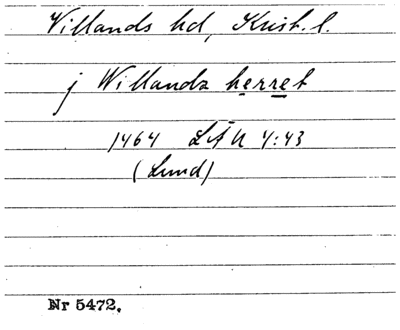 Villands hd, Krist. l.
j Willandz herret
1464 LÄU 4:43
(Lund)
Nr 5472.